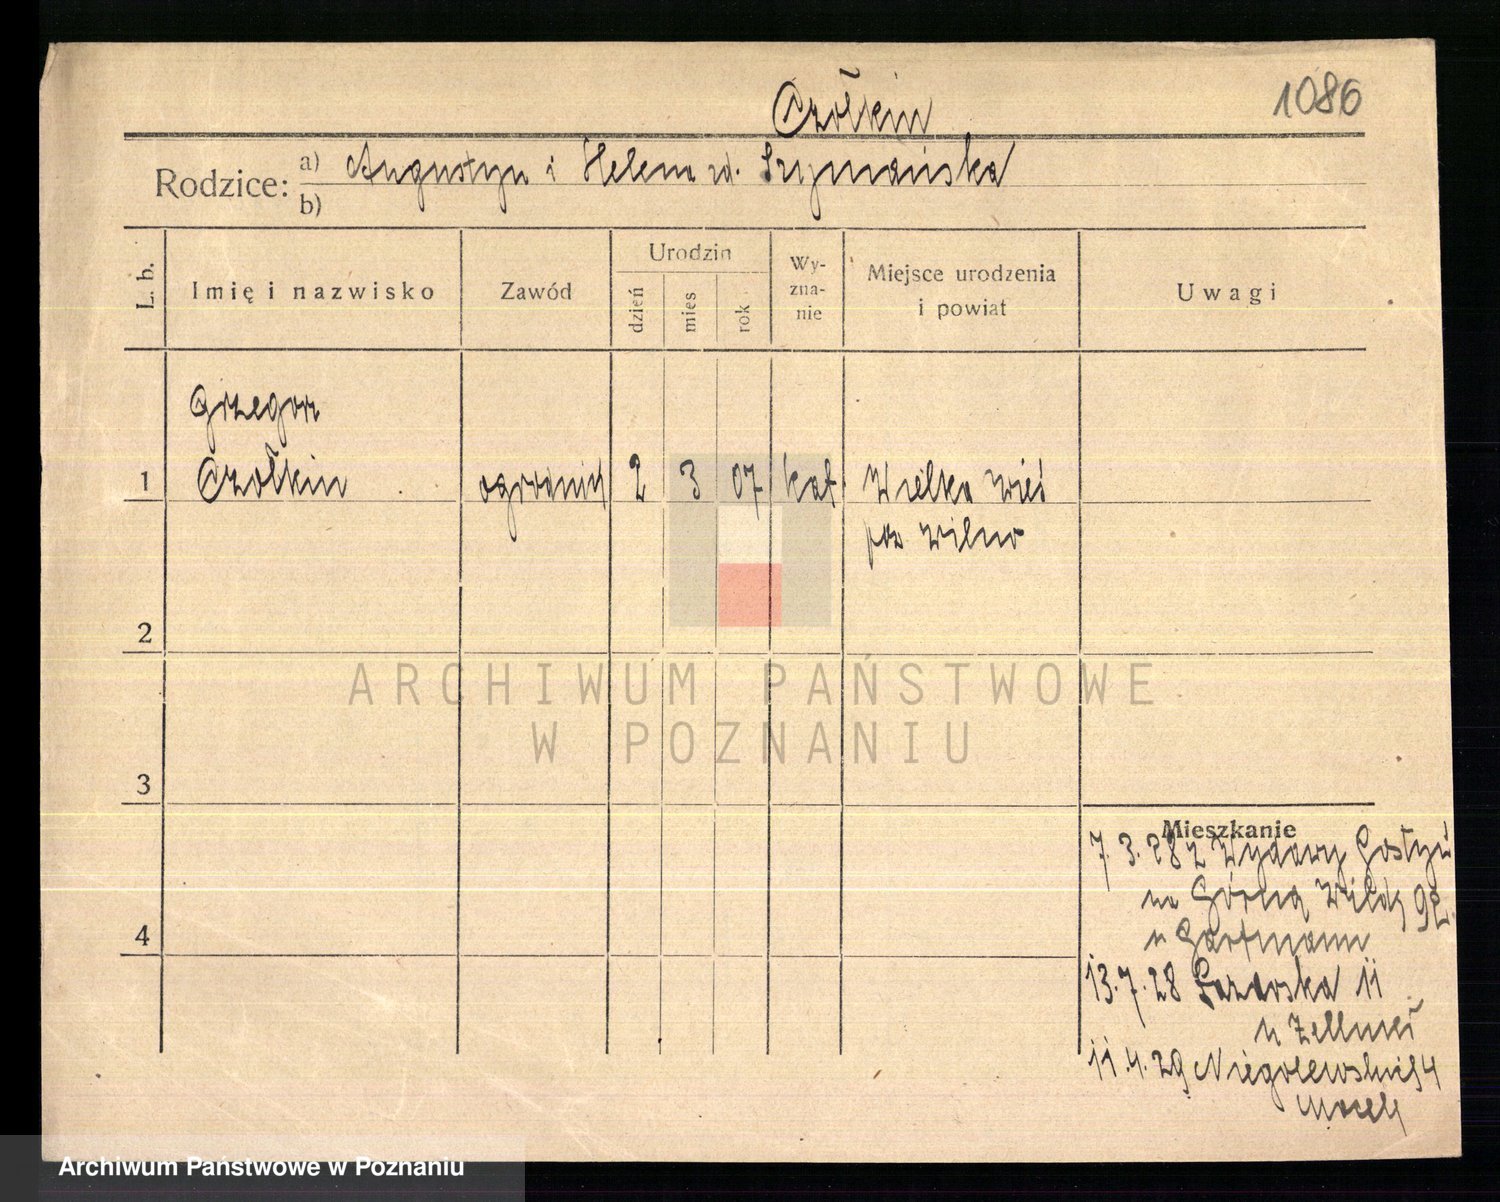 Czołkin 1086
Rodzice: a) Augustyn i Helena zd. Szymańska
b)
L. b. Imię i nazwisko Zawód Urodzin dzień mies rok Wy-zna-nie Miejsce urodzenia i powiat Uwagi
Grzegorz
1 Czołkin ogrodnik 2 3 07 kat Wielka Wieś
pow Wilno
2
ARCHIWUM PAŃSTWOWE
W POZNANIU
3
Mieszkanie
7.3.28 z Wydawy Gostyń
na Górną Wildę 92
u Hartmann
13.7.28 Łazarska 11
u
11.4.29 Niegolewskich 4
4
Archiwum Państwowe w Poznaniu